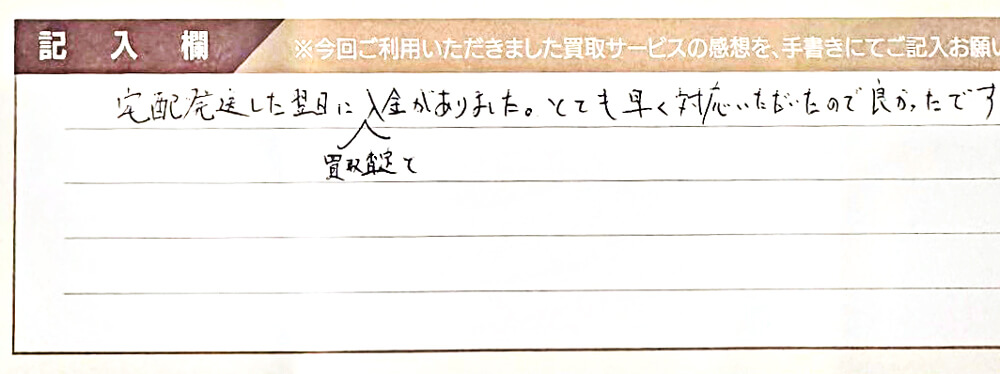 記入欄
※今回ご利用いただきました買取サービスの感想を、手書きにてご記入お願い
宅配発送した翌日に入金がありました。とても早く対応いただいたので良かったです
買取査定と